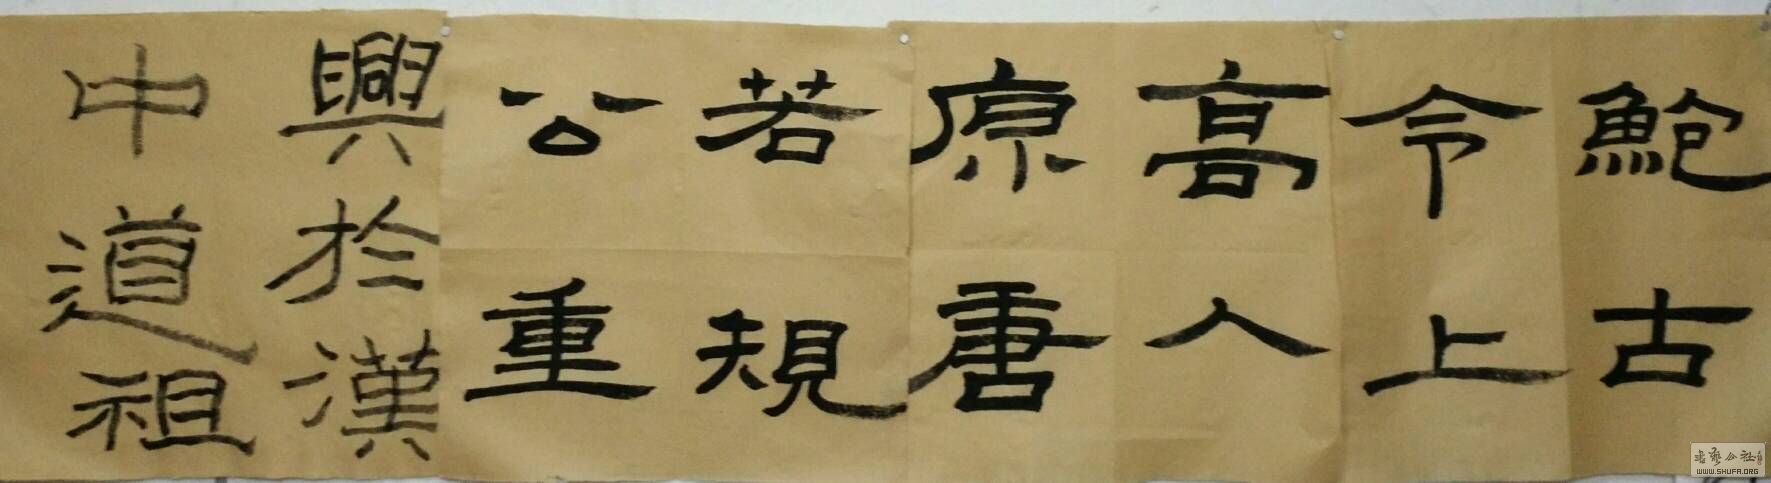 鮑古
令上
高人
原唐
若規
公重
興於漢
中道祖
書法公社
WWW.SHUFA.ORG